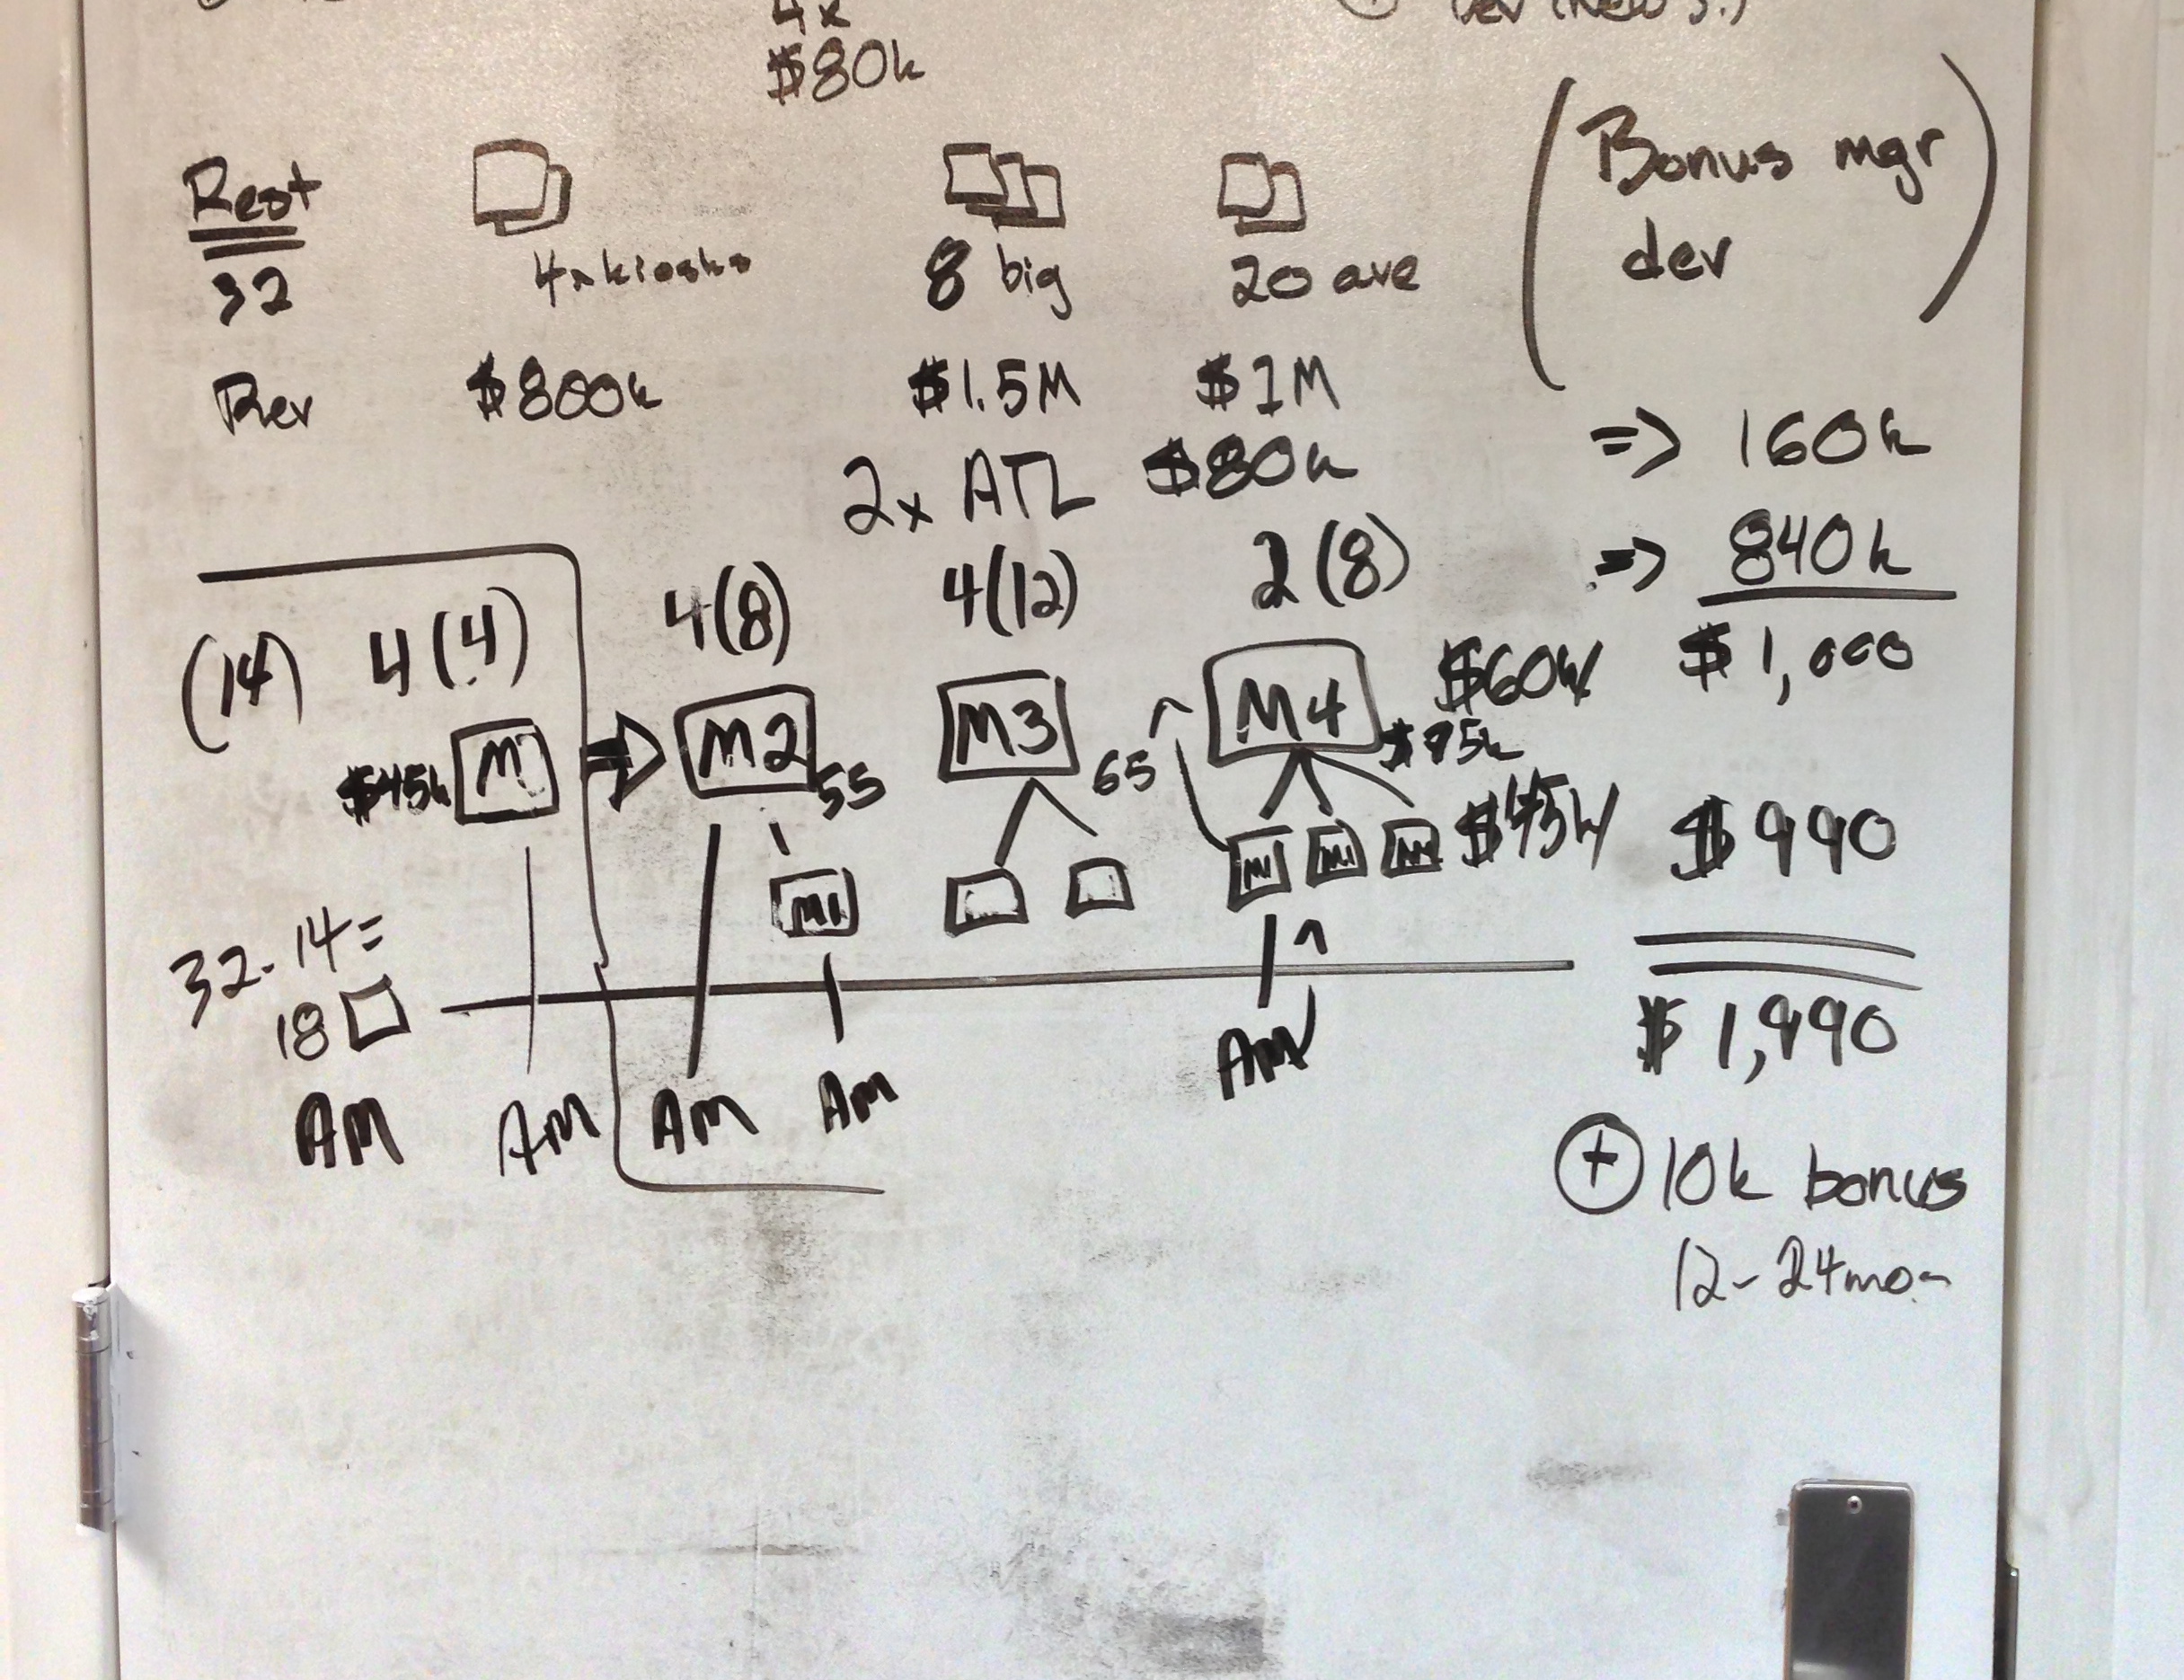 4x
$80k
Rest
32
4x kiosks
8 big
20 ave
(Bonus mgr
dev)
Rev
$800k
$1.5M
$1M
2x ATL
$80k
=> 160k
=> 840k
$1,000
(14)
4(4)
4(8)
4(12)
2(8)
$45k
M
M2
55
M3
65
M4
$60k
$75k
M1
M
M1
M
$45k
$990
32-14=
18
$1,990
AM
AM
AM
AM
AM
+ 10k bonus
12-24mo-